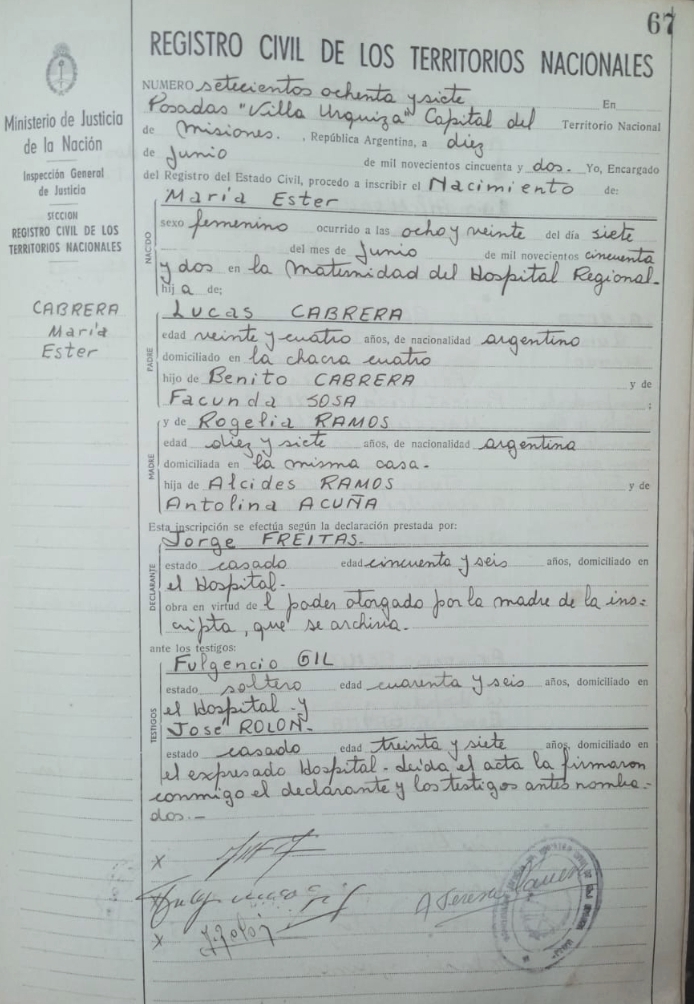 67
REGISTRO CIVIL DE LOS TERRITORIOS NACIONALES
Ministerio de Justicia
de la Nación
Inspección General
de Justicia
SECCION
REGISTRO CIVIL DE LOS
TERRITORIOS NACIONALES
CABRERA
María
Ester
NUMERO setecientos ochenta y siete En
Posadas "Villa Urquiza" Capital del Territorio Nacional
de Misiones. , República Argentina, a diez
de Junio de mil novecientos cincuenta y dos. Yo, Encargado
del Registro del Estado Civil, procedo a inscribir el Nacimiento de:
María Ester
NACIDO
sexo femenino ocurrido a las ocho y veinte del día siete
del mes de Junio de mil novecientos cincuenta
y dos en la Maternidad del Hospital Regional.
hija de;
PADRE
Lucas CABRERA
edad veinte y cuatro años, de nacionalidad argentino
domiciliado en la chacra cuatro
hijo de Benito CABRERA y de
Facunda SOSA ;
MADRE
y de Rogelia RAMOS
edad diez y siete años, de nacionalidad argentina
domiciliada en la misma casa.
hija de Alcides RAMOS y de
Antolina ACUÑA
Esta inscripción se efectúa según la declaración prestada por:
DECLARANTE
Jorge FREITAS.
estado casado edad cincuenta y seis años, domiciliado en
el Hospital.
obra en virtud del poder otorgado por la madre de la ins-
cripta, que se archiva.
ante los testigos:
TESTIGOS
Fulgencio GIL
estado soltero edad cuarenta y seis años, domiciliado en
el Hospital - y
José ROLON.
estado casado edad treinta y siete años, domiciliado en
el expresado Hospital - Leída el acta la firmaron
conmigo el declarante y los testigos antes nombra-
dos.-
x
x
J Rolón
A Teresa